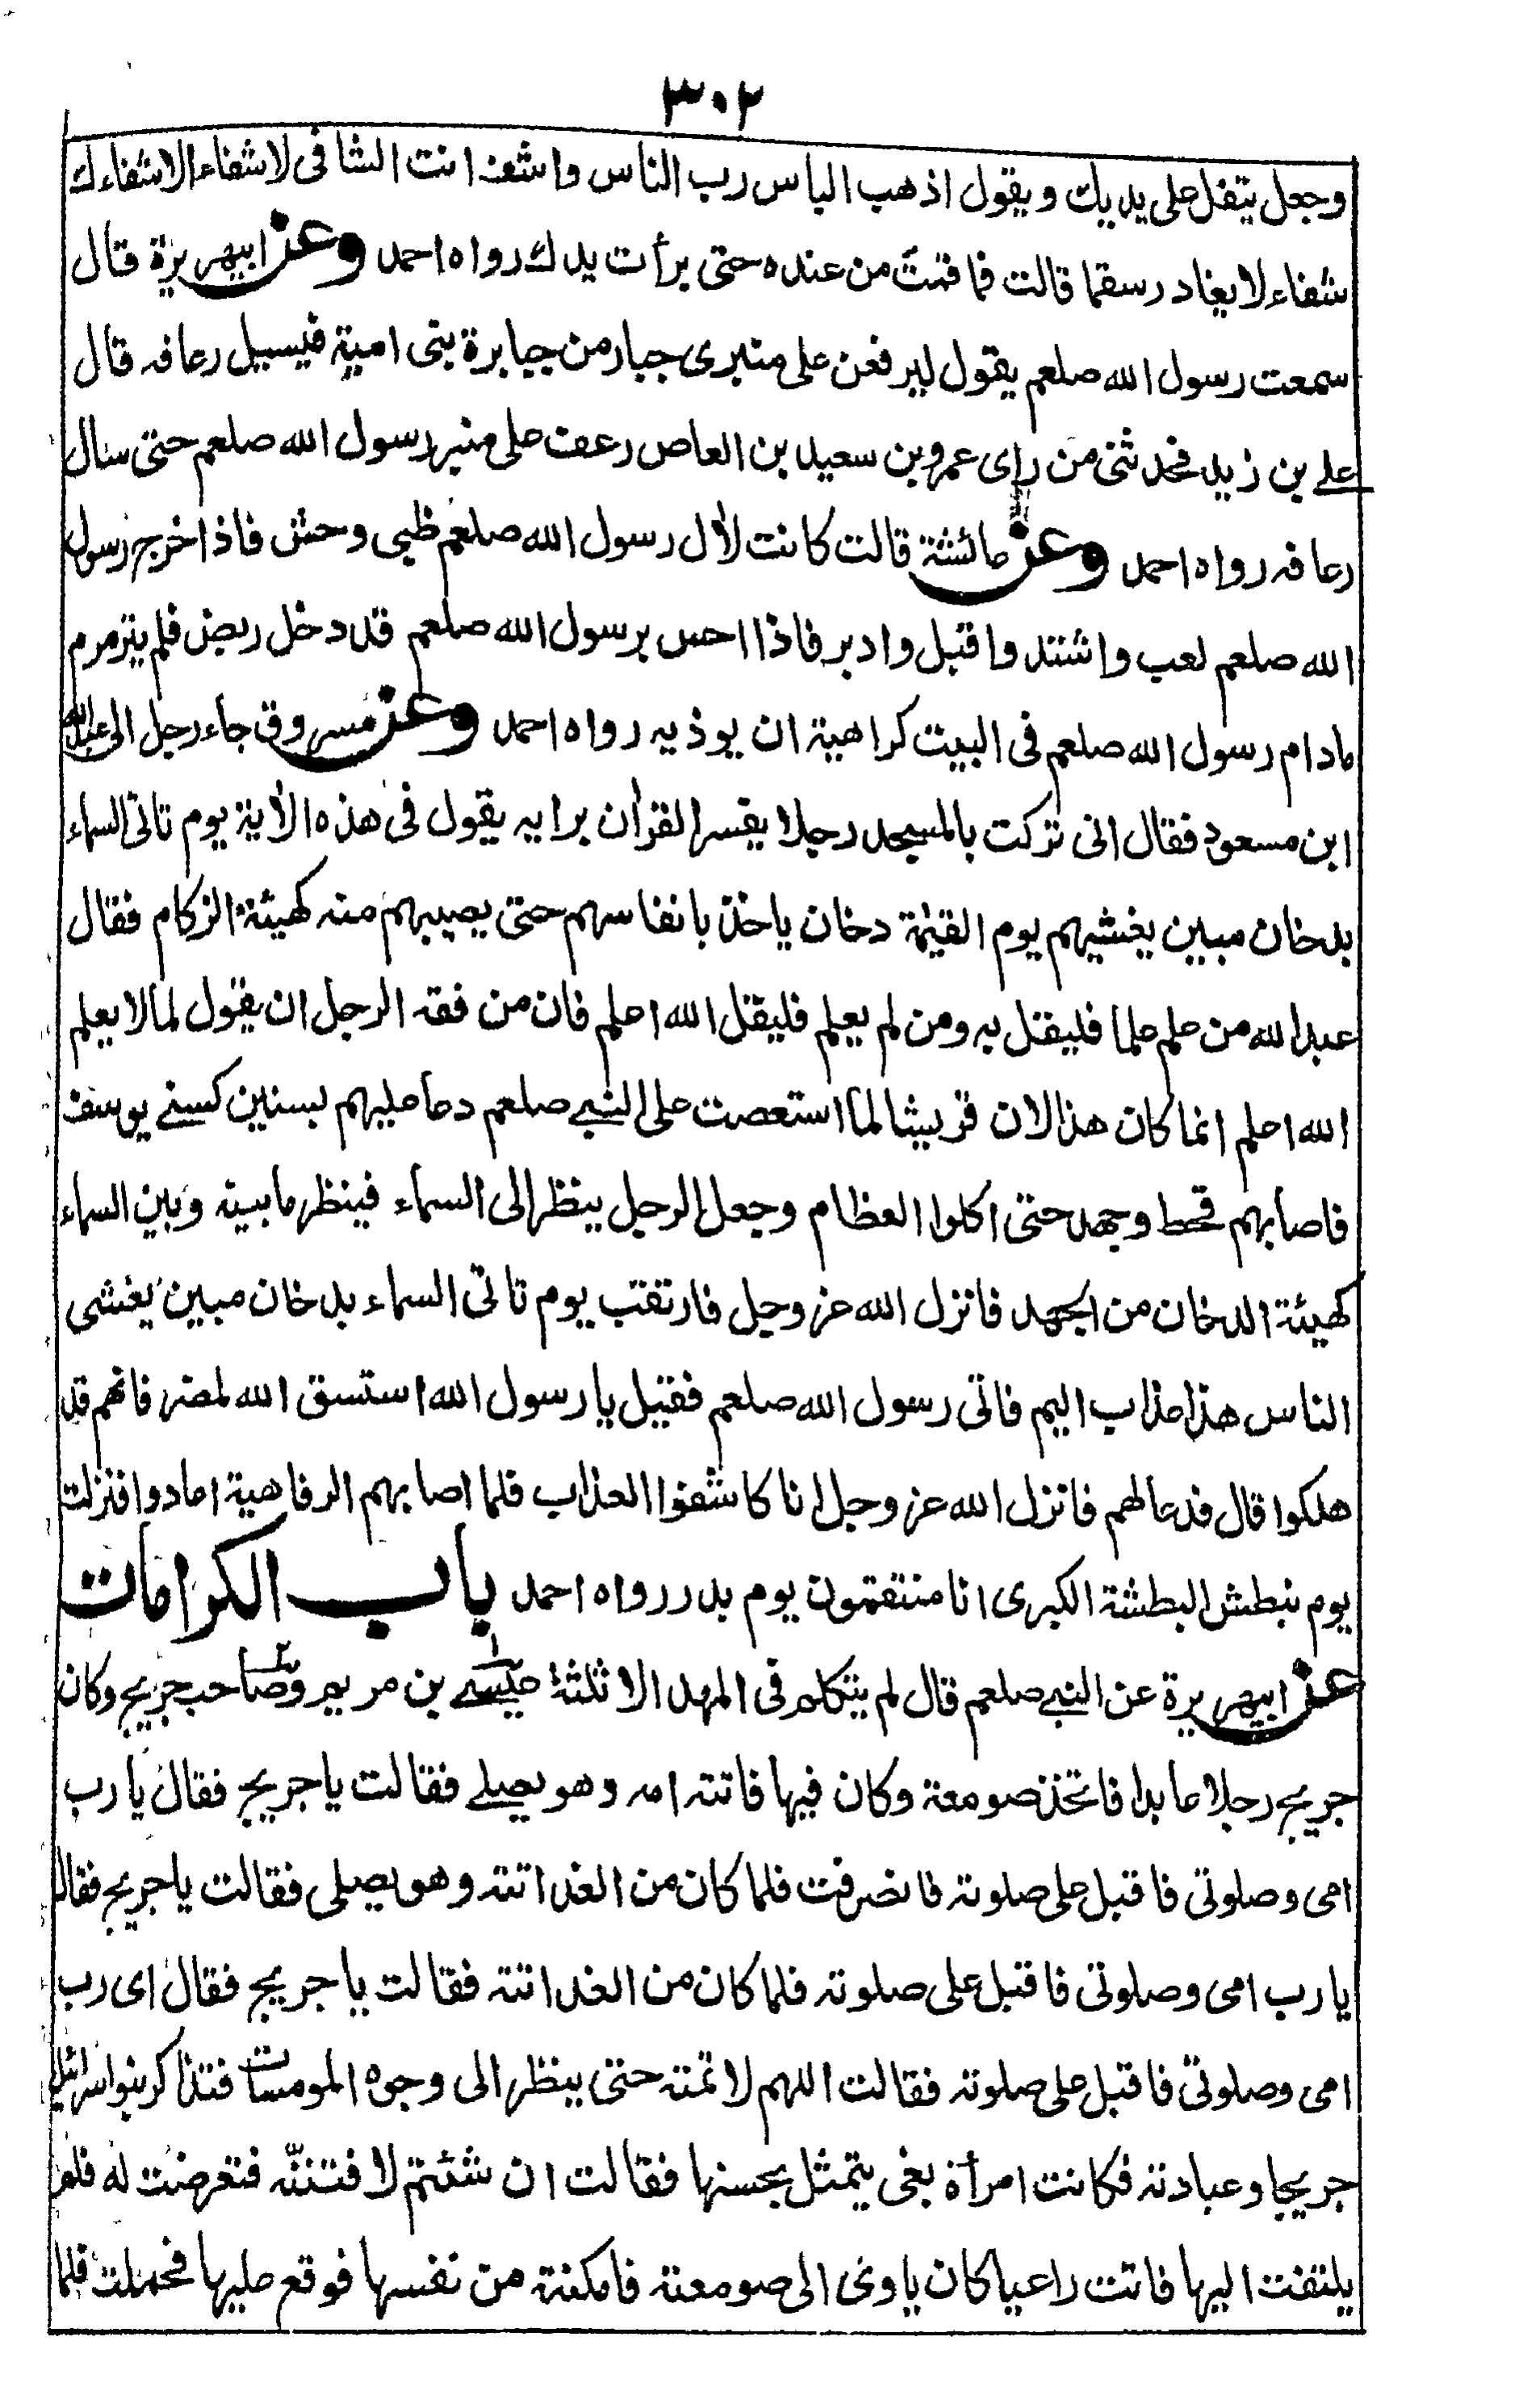 ٣٠٢
وجعل يتفل على يديك ويقول اذهب الباس رب الناس واشف انت الشافى لا شفاء الا شفاءك
شفاء لا يغادر سقما قالت فما قمت من عنده حتى برأت يدك رواه احمد وعن ابيهريرة قال
سمعت رسول الله صلعم يقول ليرفعن على منبرى جبار من جبابرة بنى امية فيسيل رعافه قال
على بن زيد فحدثنى من راى عمرو بن سعيد بن العاص رعف على منبر رسول الله صلعم حتى سال
رعافه رواه احمد وعن عائشة قالت كانت لاٰل رسول الله صلعم ظبى وحش فاذا خرج رسول
الله صلعم لعب واشتد واقبل وادبر فاذا احس برسول الله صلعم قد دخل ربض فلم يترمرم
مادام رسول الله صلعم فى البيت كراهية ان يوذيه رواه احمد وعن مسروق جاء رجل الى عبدالله
ابن مسعود فقال انى تركت بالمسجد رجلا يفسر القراٰن برايه يقول فى هذه الاٰية يوم تاتى السماء
بدخان مبين يغشيهم يوم القيٰمة دخان ياخذ بانفاسهم حتى يصيبهم منه كهيئة الزكام فقال
عبدالله من علم علما فليقل به ومن لم يعلم فليقل الله اعلم فان من فقه الرجل ان يقول لما لا يعلم
الله اعلم انما كان هذا لان قريشا لما استعصت على النبى صلعم دعا عليهم بسنين كسنى يوسف
فاصابهم قحط وجهد حتى اكلوا العظام وجعل الرجل ينظر الى السماء فينظر ما بينه وبين السماء
كهيئة الدخان من الجهد فانزل الله عز وجل فارتقب يوم تاتى السماء بدخان مبين يغشى
الناس هذا عذاب اليم فاتى رسول الله صلعم فقيل يا رسول الله استسق الله لمضر فانهم قد
هلكوا قال فدعا لهم فانزل الله عز وجل انا كاشفوا العذاب فلما اصابهم الرفاهية عادوا فنزلت
يوم نبطش البطشة الكبرى انا منتقمون يوم بدر رواه احمد باب الكرامات
عن ابيهريرة عن النبى صلعم قال لم يتكلم فى المهد الا ثلثة عيسى بن مريم وصاحب جريج وكان
جريج رجلا عابدا فاتخذ صومعة وكان فيها فاتته امه وهو يصلى فقالت يا جريج فقال يا رب
امى وصلوتى فاقبل على صلوته فانصرفت فلما كان من الغد اتته وهو يصلى فقالت يا جريج فقال
يا رب امى وصلوتى فاقبل على صلوته فلما كان من الغد اتته فقالت يا جريج فقال اى رب
امى وصلوتى فاقبل على صلوته فقالت اللهم لا تمته حتى ينظر الى وجوه المومسات فتذاكر بنو اسرائيل
جريجا وعبادته فكانت امرأة بغى يتمثل بحسنها فقالت ان شئتم لافتننه فتعرضت له فلم
يلتفت اليها فاتت راعيا كان ياوى الى صومعته فامكنته من نفسها فوقع عليها فحملت فلما